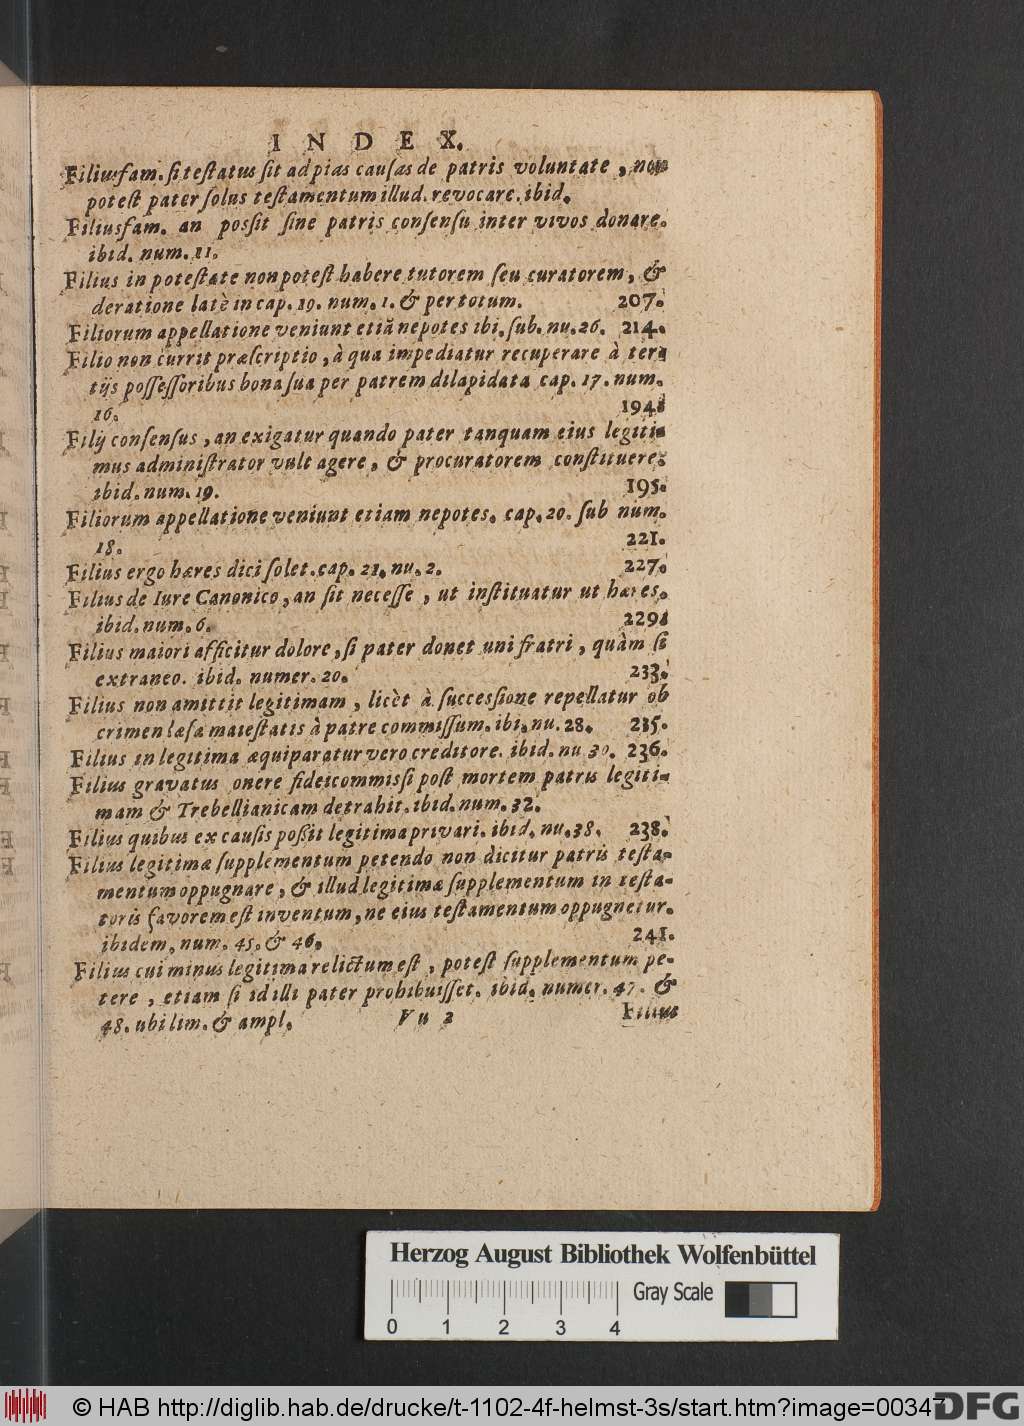 INDEX.
Filiusfam. si testatus sit ad pias causas de patris voluntate, non
potest pater solus testamentum illud revocare. ibid.
Filiusfam. an possit sine patris consensu inter vivos donare.
ibid. num. 11.
Filius in potestate non potest habere tutorem seu curatorem, &
de ratione latè in cap. 19. num. 1. & per totum. 207.
Filiorum appellatione veniunt etiã nepotes ibi. sub. nu. 26. 214.
Filio non currit præscriptio, à qua impediatur recuperare à ter-
tijs possessoribus bona sua per patrem dilapidata cap. 17. num.
16. 194.
Filij consensus, an exigatur quando pater tanquam eius legiti-
mus administrator vult agere, & procuratorem constituere:
ibid. num. 19. 195.
Filiorum appellatione veniunt etiam nepotes. cap. 20. sub num.
18. 221.
Filius ergo hæres dici solet. cap. 21. nu. 2. 227.
Filius de Iure Canonico, an sit necesse, ut instituatur ut hæres.
ibid. num. 6. 229.
Filius maiori afficitur dolore, si pater donet uni fratri, quàm si
extraneo. ibid. numer. 20. 233.
Filius non amittit legitimam, licèt à successione repellatur ob
crimen læsæ maiestatis à patre commissum. ibi. nu. 28. 235.
Filius in legitima æquiparatur vero creditore. ibid. nu 30. 236.
Filius gravatus onere fideicommissi post mortem patris legiti-
mam & Trebellianicam detrahit. ibid. num. 32.
Filius quibus ex causis possit legitima privari. ibid. nu. 38. 238.
Filius legitimæ supplementum petendo non dicitur patris testa-
mentum oppugnare, & illud legitimæ supplementum in testa-
toris favorem est inventum, ne eius testamentum oppugnetur.
ibidem, num. 45. & 46. 241.
Filius cui minus legitima relictum est, potest supplementum pe-
tere, etiam si id illi pater prohibuisset. ibid. numer. 47. &
48. ubi lim. & ampl. Vu 2 Filius
Herzog August Bibliothek Wolfenbüttel
Gray Scale
0 1 2 3 4
© HAB http://diglib.hab.de/drucke/t-1102-4f-helmst-3s/start.htm?image=00347
DFG